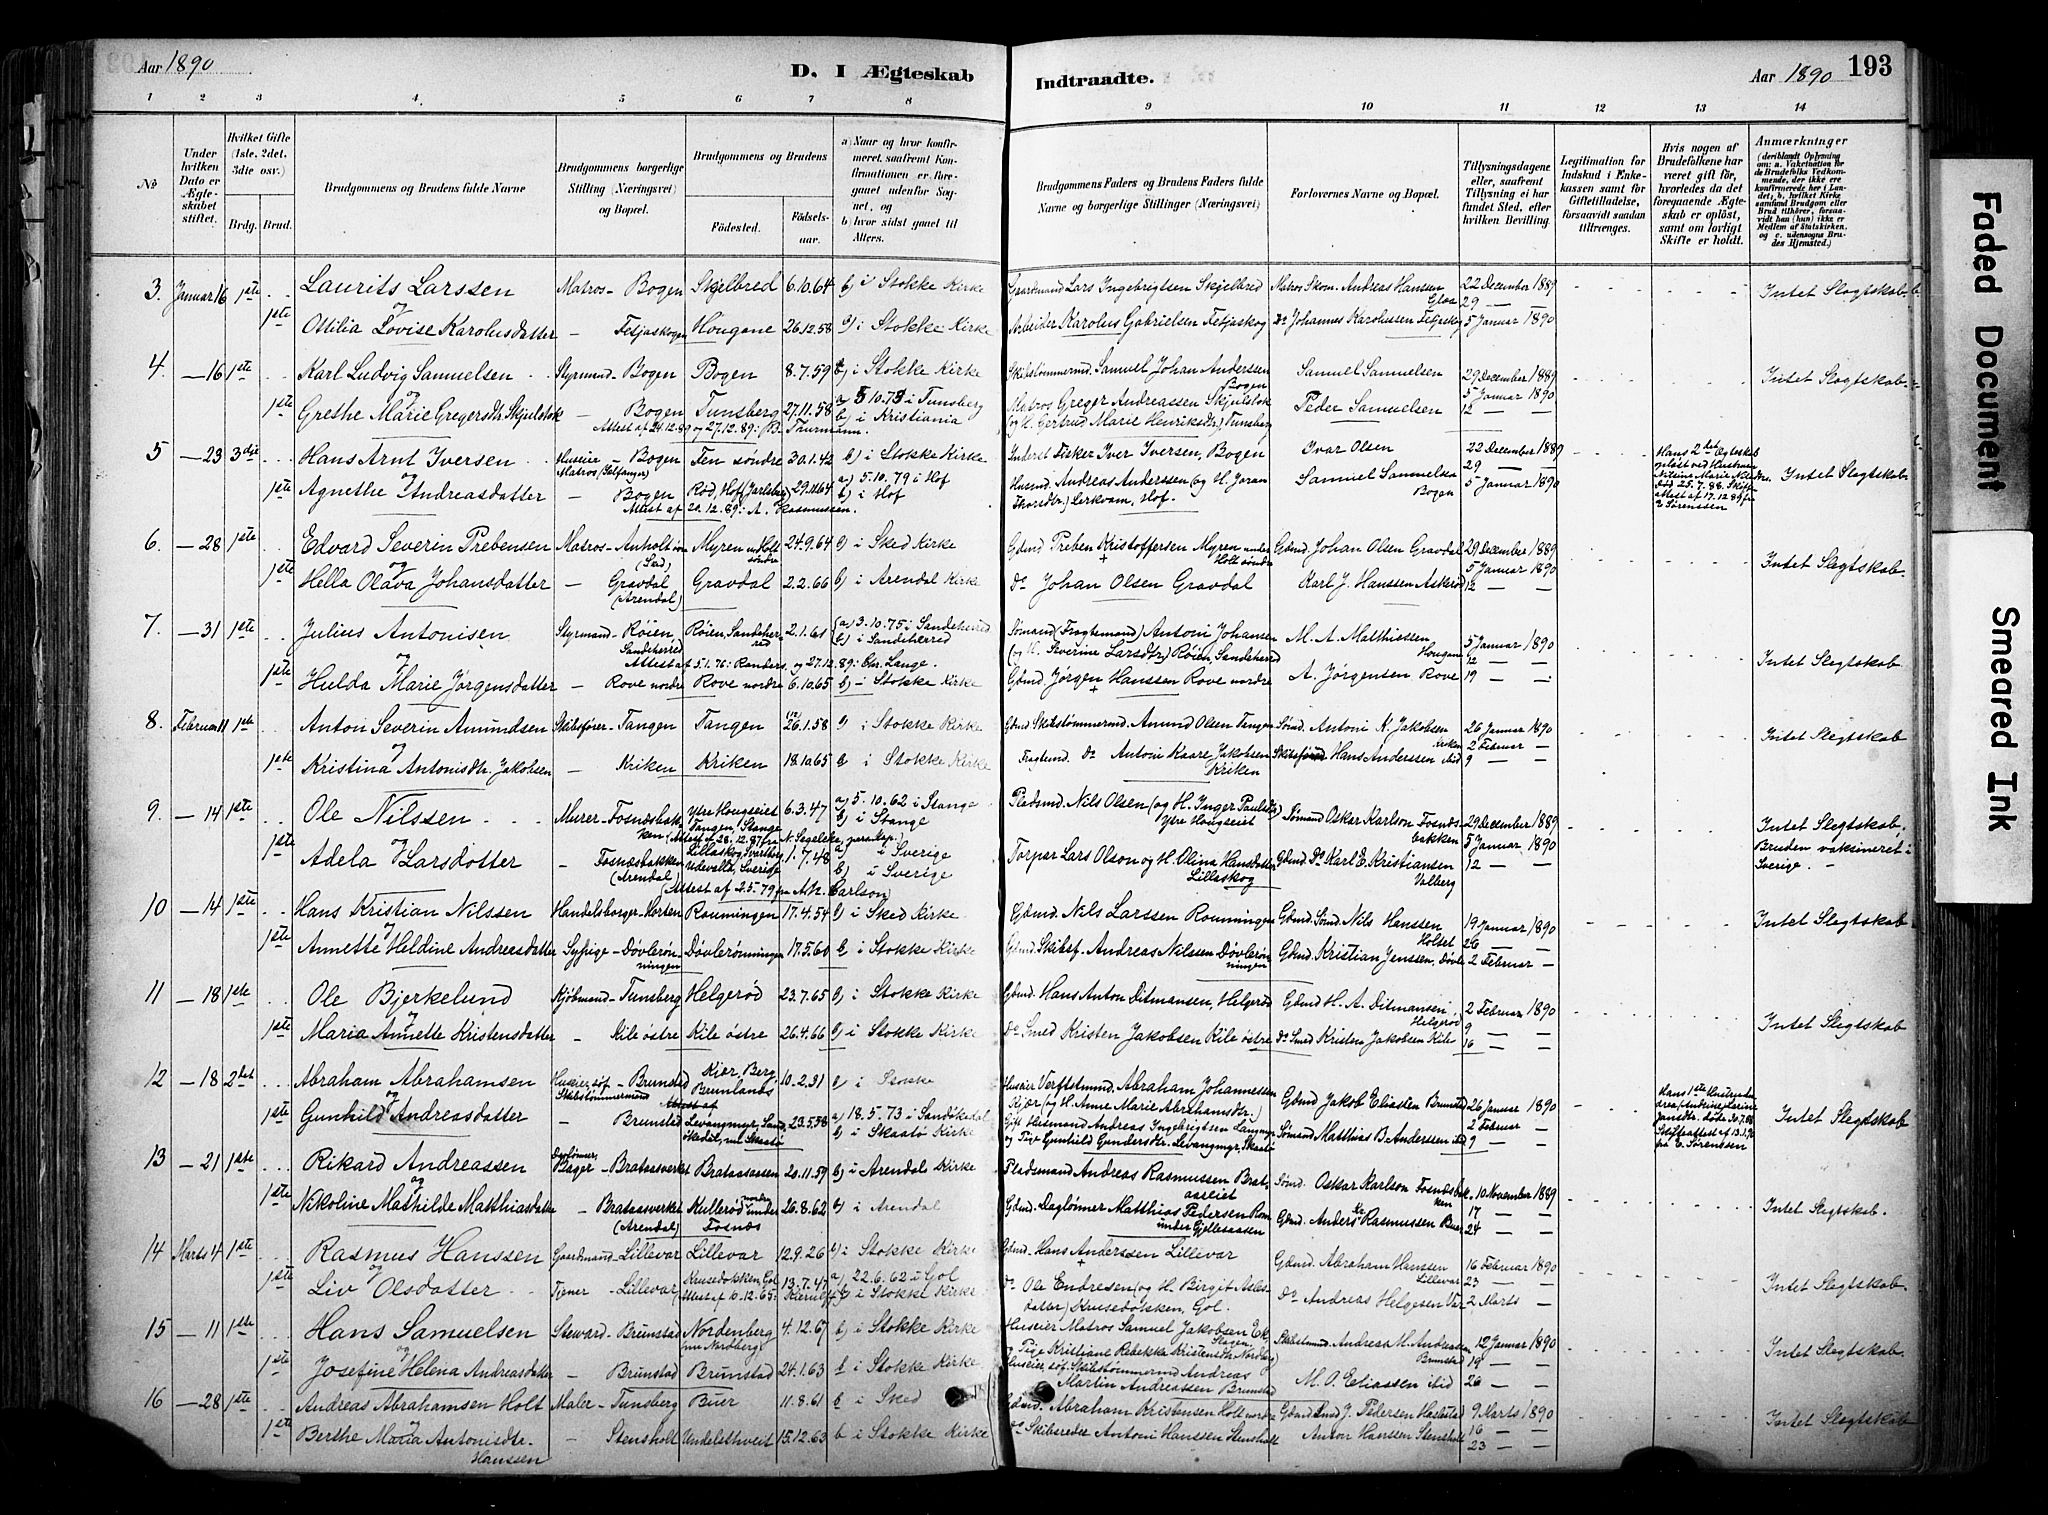 Aar 1890
D. I Ægteskab Indtraadte.
Aar 1890 193
1 2 3 4. 5 6 7 8 9 10 11 12 13 14
No
Under hvilken Dato er Ægteskabet stiftet.
Hvilket Gifte (1ste, 2det, 3dte osv.)
Brdg. Brud.
Brudgommens og Brudens fulde Navne
Brudgommens borgerlige Stilling (Næringsvei) og Bopæl.
Brudgommens og Brudens
Fødested.
Fødselsaar.
a) Naar og hvor konfirmeret, saafremt Konfirmationen er foregaaet udenfor Sognet, og
b) hvor sidst gaaet til Alters.
Brudgommens Faders og Brudens Faders fulde Navne og borgerlige Stillinger (Næringsvei)
Forlovernes Navne og Bopæl.
Tillysningsdagene eller, saafremt Tillysning ei har fundet Sted, efter hvilken Bevilling.
Legitimation for Indskud i Enkekassen samt for Giftetilladelse, forsaavidt saadan tiltrænges.
Hvis nogen af Brudefolkene har været gift før, hvorledes da det foregaaende Ægteskab er opløst, samt om lovligt Skifte er holdt.
Anmærkninger (deriblandt Oplysning om: a. Vakcination for de Brudefolks Vedkommende, der ikke ere konfirmerede her i Landet; b. hvilket Kirkesamfund Brudgom eller Brud tilhører, forsaavidt han (hun) ikke er Medlem af Statskirken, og c. udensogns Brudes Hjemsted.)
3. Januar 16 1ste Laurits Larssen Matros - Bogen Skjelbred 6.10.64 b) i Stokke Kirke Gaardmand Lars Ingebrigtsen Skjelbred Matros Skom. Andreas Hanssen 22 December 1889 Intet Slegtskab
og 29 —
1ste Ottilia Lovise Karolusdatter - Fetjaskogen Hougane 26.12.58 b) i Stokke Kirke Arbeider Karolus Gabrielsen Fetjaskog Do Johannes Karolussen Fetjaskog 5 Januar 1890
4. —16 1ste Karl Ludvig Samuelsen Styrmand - Bogen Bogen 8.7.59 b) i Stokke Kirke Skibstømmermd. Samuel Johan Anderssen Bogen Samuel Samuelsen 29 December 1889 Intet Slegtskab
og 5 Januar 1890
1ste Grethe Marie Gregersdtr. Skjulstok - Bogen Tunsberg 27.11.58 a) 5.10.73 i Tunsberg b) i Kristiania Matros Greger Andreassen Skjulstok (og H. Gertrud Marie Henriksdtr.) Tunsberg Peder Samuelsen 12 —
Attest af 24.12.89 og 27.12.89: B. Thurmann.
5 —23 3die Hans Arnt Iversen Huseier Matros (Selfanger) - Bogen Fen søndre 30.1.42 b) i Stokke Kirke Inderst Fisker Iver Iversen, Bogen Ivar Olsen 22 December 1889 Hans 2det Egteskab opløst ved Hustruen Nilsine Marie Nilsdtr. død 25.7.88. Skifteattest af 17.12.89 fra E. Sørenssen Intet Slegtskab
og 29 —
1ste Agnethe Andreasdatter - Bogen Rød, Hof (Jarlsberg) 29.11.64 a) 5.10.79 i Hof b) i Hof Husmd. Andreas Anderssen (og H. Joran Thorsdtr.) Lerkoam, Hof. Samuel Samuelsen Bogen 5 Januar 1890
Attest af 20.12.89: A. Rasmussen.
6. —28 1ste Edvard Severin Prebensen Matros - Anholt (Sked) Myren und. Holt søndre 24.9.64 b) i Sked Kirke Gdmd. Preben Kristoffersen Myren under Holt søndre Gdmd. Johan Olsen Gravdal 29 December 1889 Intet Slegtskab
og 5 Januar 1890
1ste Hella Olava Johansdatter - Gravdal (Arendal) Gravdal 2.2.66 b) i Arendal Kirke Do Johan Olsen Gravdal Karl J. Hanssen Askerød 12 —
7. —31 1ste Julius Antonisen Styrmand - Røien Sandeherred Røien, Sandeherred 2.1.61 a) 3.10.75 i Sandeherred b) i Sandeherred Sømand (Fragtemand) Antoni Johansen (og H. Severine Larsdtr.) Røien, Sandeherred M. A. Matthiessen Hougane 5 Januar 1890
Attest af 5.1.76: Randers, og 27.12.89: Chr. Lange. 12 — Intet Slegtskab
1ste Hulda Marie Jørgensdatter - Rove nordre Rove nordre 6.10.65 b) i Stokke Kirke Gdmd. Jørgen Hanssen Rove nordre A. Jørgensen Rove 19 —
8. Februar 11 1ste Anton Severin Amundsen Skibsfører - Tangen Tangen 26.1.58 b) i Stokke Kirke Gdmd. Skibstømmermd. Amund Olsen Tangen Sømd. Antoni K. Jakobsen Kriken 26 Januar 1890 Intet Slegtskab
og 2 Februar —
1ste Kristina Antonisdtr. Jakobsen - Kriken Kriken 18.10.65 b i Stokke Kirke Fragtemd. Do Antoni Kaare Jakobsen Kriken Skibsfører Hans Anderssen ibid 9 —
9. —14 1ste Ole Nilssen Murer - Fosnæsbakken Ytre Hougseiet Tangen, Stange 6.3.47 a) 5.10.62 i Stange b) i Stange Pladsmd. Nils Olsen (og H. Inger Paulsdtr.) Ytre Hougseiet Sømand Oskar Karlson Fosnæsbakken 29 December 1889 Intet Slegtskab.
(Attest af 28.12.87 fra N. Segelcke, pers. kap.) 5 Januar 1890 Bruden vaksineret i Sverige.
1ste Adela Larsdotter - Fosnæsbakken (Arendal) Lillaskog, Svarteborg Udevalla, Sverige 1.7.48 a) i Sverige b) i Sverige Torpar Lars Olson og H. Olina Hansdotter Lillaskog Gdmd. Do Karl E. Kristiansen Valberg 12 —
(Attest af 2.5.79 fra A. Th. Carlson)
10 —14 1ste Hans Kristian Nilssen Handelsborger - Horten Rouningen 17.4.54 b) i Sked Kirke Gdmd. Nils Larssen Rouningen Gdmd. Sømd. Nils Hanssen Holset 19 Januar 1890 Intet Slegtskab
og 26 —
1ste Annette Heldine Andreasdatter Sypige - Døvlerønningen Døvlerønningen 17.5.60 b i Stokke Kirke Gdmd. Skibsf. Andreas Nilssen Døvlerønningen Gdmd. Kristian Jenssen, Døvle 2 Februar —
11 —18 1ste Ole Bjerkelund Kjøbmand - Tunsberg Helgerød 23.7.65 b) i Stokke Kirke Gdmd. Hans Anton Ditmansen, Helgerød Gdmd H. A. Ditmansen Helgerød 2 Februar 1890
og 9 — Intet Slegtskab
1ste Maria Annette Kristensdatter - Kile østre Kile østre 26.4.66 b) i Stokke Kirke Do Smed Kristen Jakobsen Kile østre Do Smed Kristen Jakobsen Kile 16 —
12 —18 2det Abraham Abrahamsen Huseier, søf. Skibstømmermand - Brunstad Kjær, Berg, Brunlanes 10.2.31 b) i Stokke Huseier Verftstmmd. Abraham Johannessen Kjær (og H. Anne Marie Abrahamsdtr.) Gdmd Jakob Eliasen Brunstad 26 Januar 1890 Intet Slegtskab
og 2 Februar —
1ste Gunhild Andreasdatter - Brunstad Levangmyr, Sandøkedal, nu Skaatø 23.5.58 a) 18.5.73 i Sandøkedal b) i Skaatø Kirke Gift Husmand Andreas Ingebrigtsen Langmyr og Pige Gunhild Gundersdtr. Levangmyr, Skaatø Sømand Matthias B. Anderssen ibid 9 —
13 —21 1ste Rikard Andreassen Dagtømmer, Bager - Brataasverket Brataasaasen 20.11.59 b) i Arendals Kirke Pladsmand Andreas Rasmussen Brataasseiet Sømd. Oskar Karlson Fosnæsbakken 10 November 1889
og 17 — Intet Slegtskab.
1ste Nikoline Mathilde Matthiasdatter - Brataasverket (Arendal) Kullerød nordre under Fosnæs 26.8.62 b) i Arendal Gdmd. Dagtømmer Matthias Pedersen Rom under Gjellesaasen Gdmd. Anders Rasmussen Buer 24 —
14 Marts 4 1ste Rasmus Hanssen Gaardmand - Lillevar Lillevar 12.9.26 b) i Stokke Kirke Gdmd. Hans Anderssen Lillevar Gdmd. Abraham Hanssen Lillevar 16 Februar 1890
og 23 — Intet Slegtskab
1ste Liv Olsdatter Tjener - Lillevar Krusedokken, Gol 13.7.47 a) 22.6.62 i Gol b) i Stokke Kirke Do Ole Endresen (og H. Birgit Aslesdatter) Krusedokken, Gol. Do Andreas Helgesen Var 2 Marts —
(Attest af 10.12.65: Kierulf)
15 —11 1ste Hans Samuelsen Steward - Brunstad Nordenberg nu Nordberg 4.12.67 b) i Stokke Kirke Huseier Matros Samuel Jakobsen Ek, Slagen og Pige Kristiane Rebekka Kristensdtr. Nordberg) Skibstmmd. Andreas M. Andreassen Brunstad 12 Januar 1890 Intet Slegtskab
og 19 —
1ste Josefine Helena Andreasdatter - Brunstad Brunstad 24.1.63 b i Stokke Kirke Huseier søf. Skibstømmermd Andreas Martin Andreassen Brunstad M. O. Eliassen ibid 26 —
16 —28 1ste Andreas Abrahamsen Holt Maler - Tunsberg Buer 11.8.61 b i Sked Gdmd. Abraham Kristensen Holt nordre Gdmd Smed J. Pedersen Haslestad 9 Marts 1890 Intet Slegtskab
og 16 —
1ste Berthe Maria Antonisdtr. Hanssen - Stensholt Undelsthveit 15.12.63 b i Stokke Kirke Do Skibsreder Antoni Hanssen Stensholt Anton Hanssen Stensholt 23 —
Faded Document
Smeared Ink